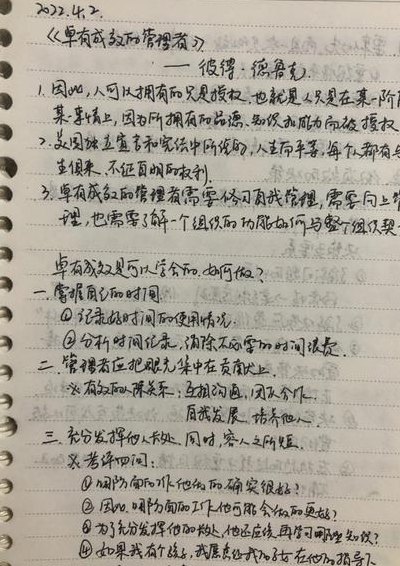 2022.4.2.
《卓有成效的管理者》
——彼得·德鲁克
1. 因此,人可以拥有的只是授权,也就是人只是在某一阶
某事情上,因为所拥有的品德、知识和能力而被授权
2. 美国独立宣言和宪法中所说的,人生而平等,每个人都有与
生俱来、不证自明的权利.
3. 卓有成效的管理者需要修习自我管理,需要向上管
理,也需要了解一个组织的功能如何与整个组织契
卓有成效是可以学会的.如何做?
一.掌握自己的时间
①记录好时间的使用情况.
②分析时间记录,消除不必要的时间浪费.
二.管理者应把眼光集中在贡献上.
※有效的人际关系:互相沟通,团队合作.
自我发展,培养他人.
三.充分发挥他人长处,同时,容人之所短.
※考评四问:
①哪方面的工作他做的确实很好?
②因此,哪方面的工作他可能会做的更好?
③为了充分发挥他的长处,他还应该再学习哪些知识?
④如果我有个孩子,我愿意让我的子女在他的指导下